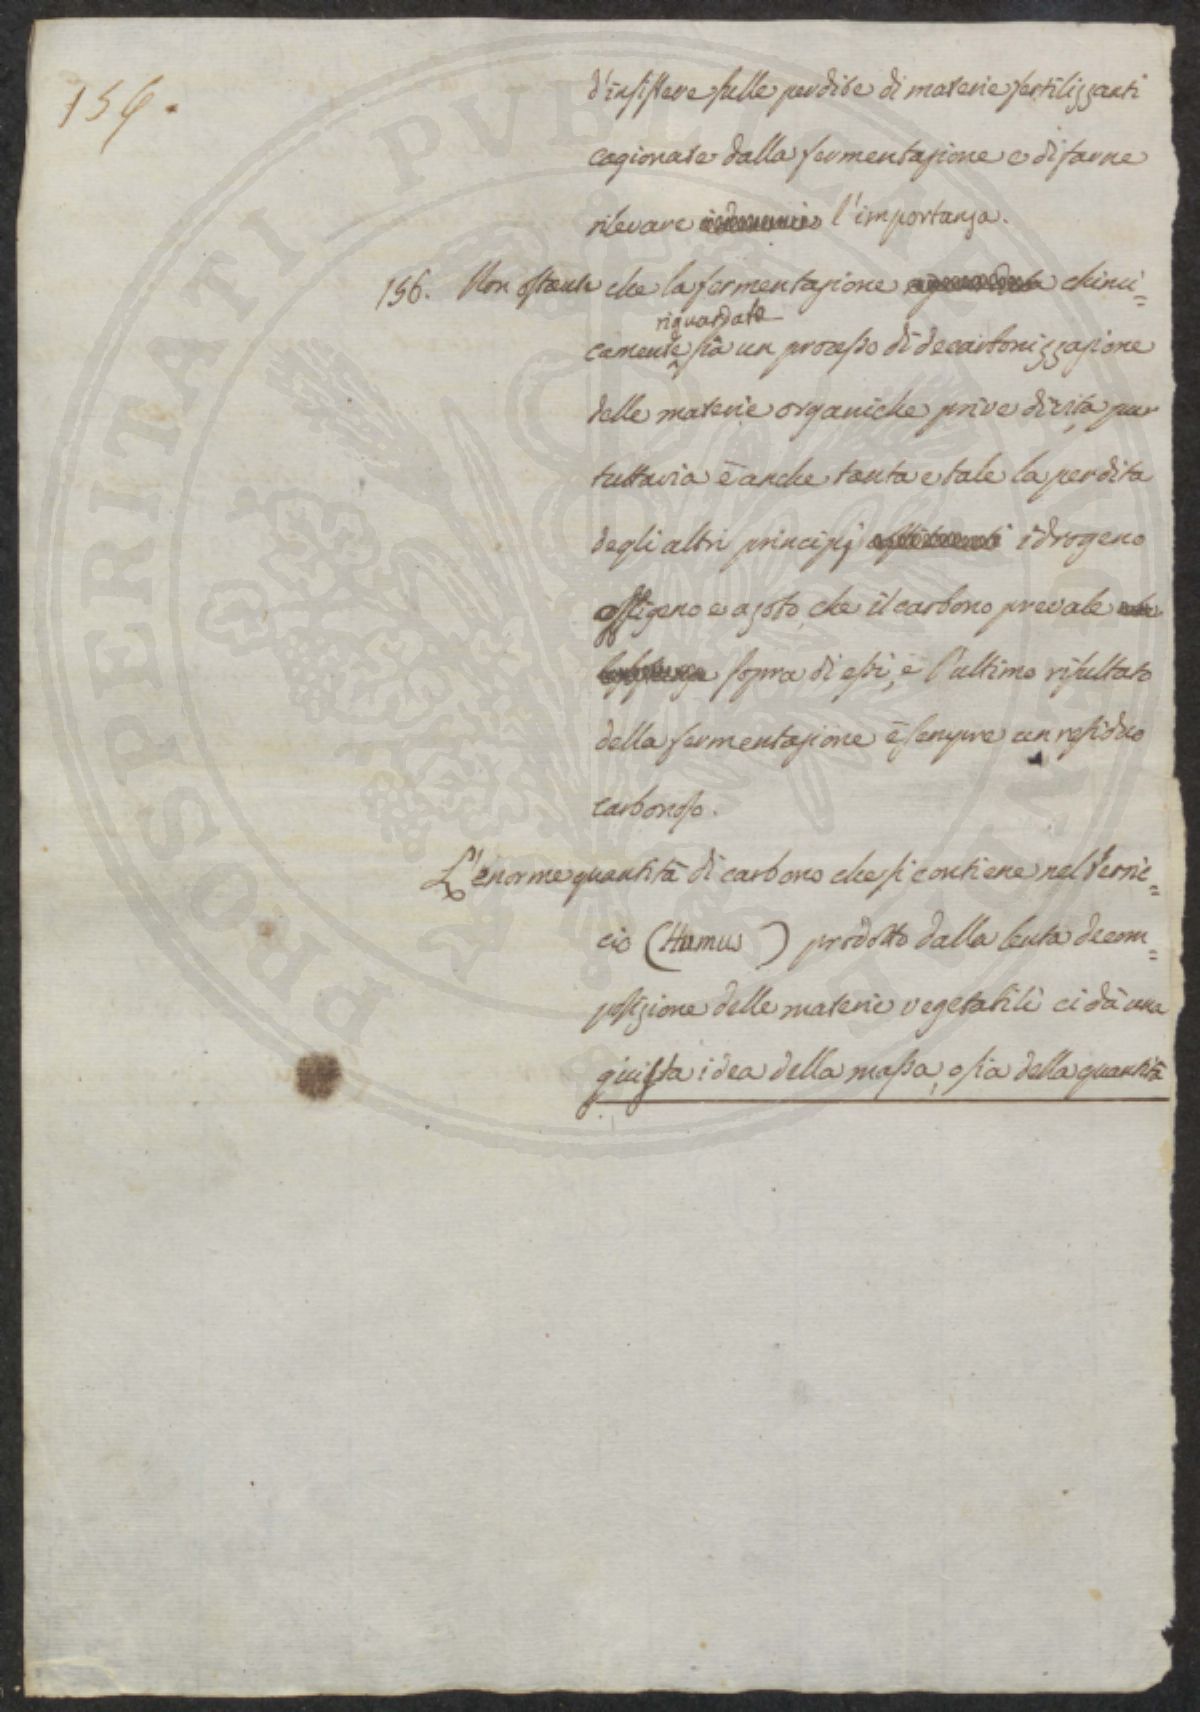 156.
d'insistere sulle perdite di materie fertilizzanti
cagionate dalla fermentazione e di farne
rilevare l'importanza.
156. Non ostante che la fermentazione chimi=
riguardata
camente sia un processo di decarbonizzazione
delle materie organiche prive di vita, pur
tuttavia è anche tanta e tale la perdita
degli altri principj idrogeno
ossigeno e azoto, che il carbono prevale
sopra di essi, e l'ultimo risultato
della fermentazione è sempre un residuo
carbonoso.
L'enorme quantità di carbono che si contiene nel terric=
cio (Humus) prodotto dalla lenta decom=
posizione delle materie vegetabili ci dà una
giusta idea della massa, o sia della quantità
PROSPERITATI PVBLICAE